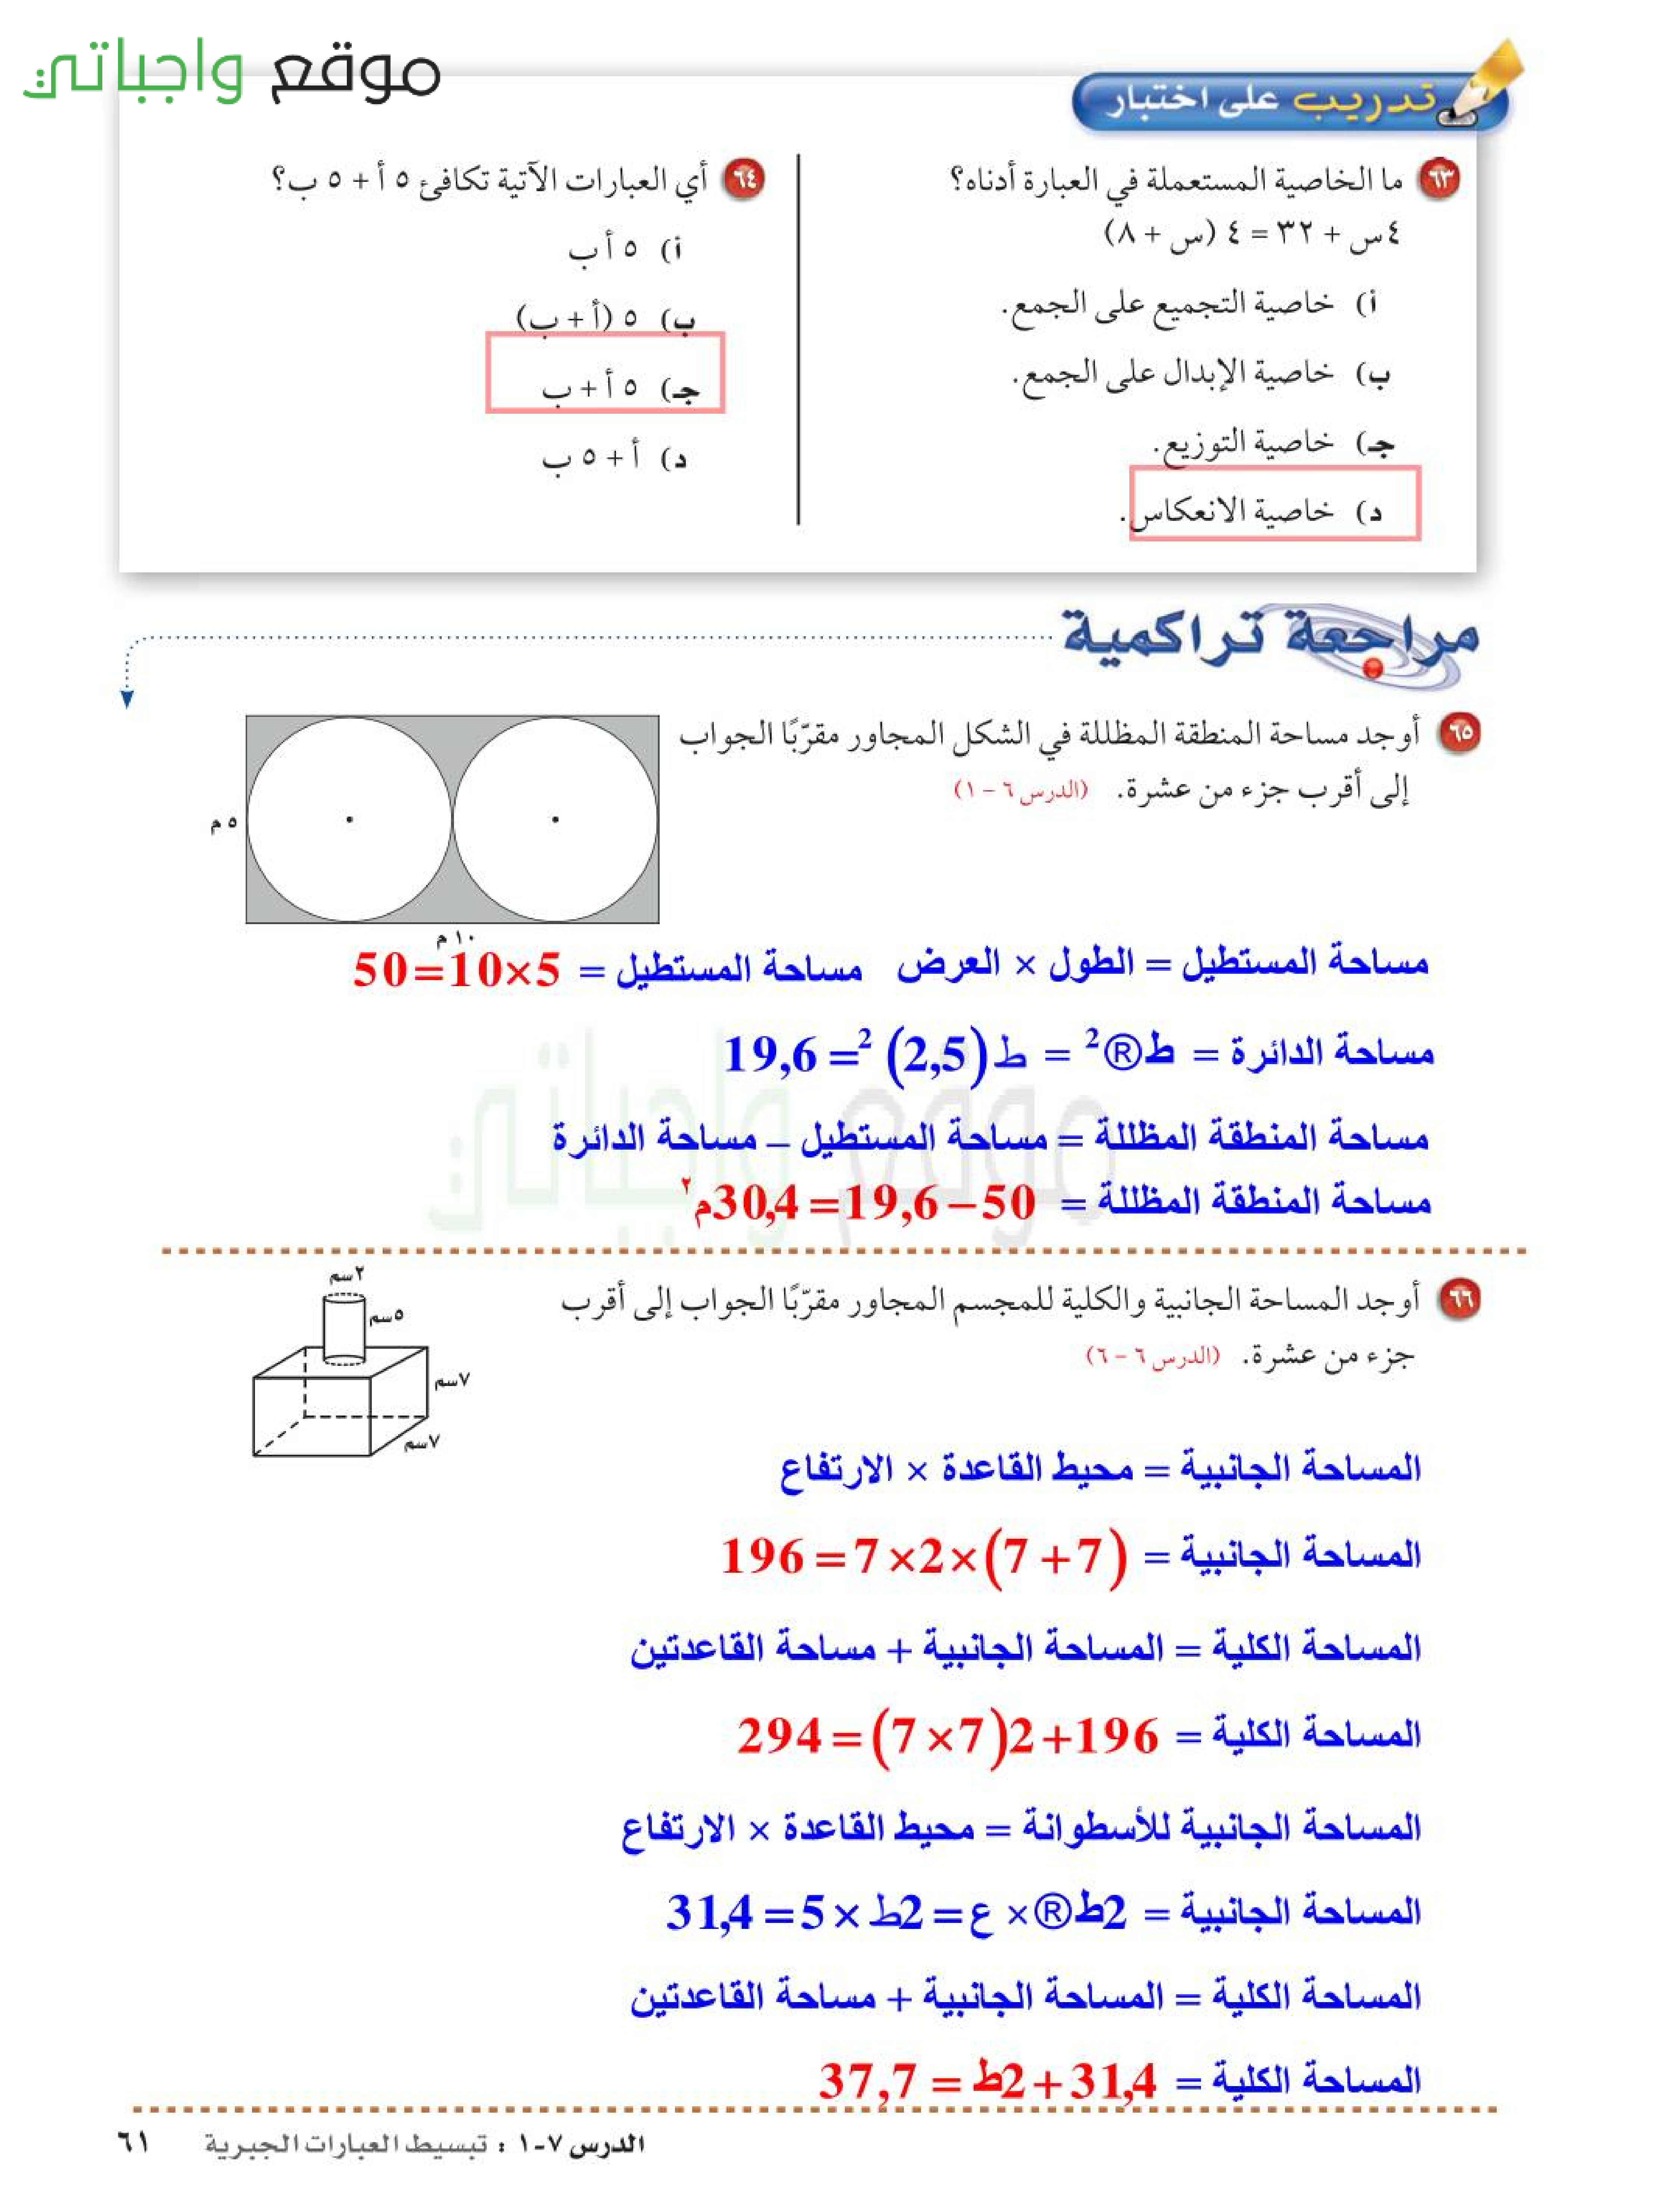 موقع واجباتي
تدريب على اختبار
٦٣ ما الخاصية المستعملة في العبارة أدناه؟
٤س + ٣٢ = ٤ (س + ٨)
أ) خاصية التجميع على الجمع.
ب) خاصية الإبدال على الجمع.
جـ) خاصية التوزيع.
د) خاصية الانعكاس.
٦٤ أي العبارات الآتية تكافئ ٥ أ + ٥ ب؟
أ) ٥ أ ب
ب) ٥ (أ + ب)
جـ) ٥ أ + ب
د) أ + ٥ ب
مراجعة تراكمية
٦٥ أوجد مساحة المنطقة المظللة في الشكل المجاور مقرّبًا الجواب
إلى أقرب جزء من عشرة. (الدرس ٦ - ١)
٥ م
١٠ م
مساحة المستطيل = الطول × العرض مساحة المستطيل = 5×10=50
مساحة الدائرة = ط®² = ط(2,5)² = 19,6
مساحة المنطقة المظللة = مساحة المستطيل – مساحة الدائرة
مساحة المنطقة المظللة = 50 – 19,6 = 30,4م٢
موقع واجباتي
٦٦ أوجد المساحة الجانبية والكلية للمجسم المجاور مقرّبًا الجواب إلى أقرب
جزء من عشرة. (الدرس ٦ - ٦)
٢سم
٥سم
٧سم
٧سم
المساحة الجانبية = محيط القاعدة × الارتفاع
المساحة الجانبية = (7 + 7)×2× 7 = 196
المساحة الكلية = المساحة الجانبية + مساحة القاعدتين
المساحة الكلية = 196+2(7× 7) = 294
المساحة الجانبية للأسطوانة = محيط القاعدة × الارتفاع
المساحة الجانبية = 2ط®× ع = 2ط × 5 = 31,4
المساحة الكلية = المساحة الجانبية + مساحة القاعدتين
المساحة الكلية = 31,4 + 2ط = 37,7
الدرس ٧-١ : تبسيط العبارات الجبرية ٦١